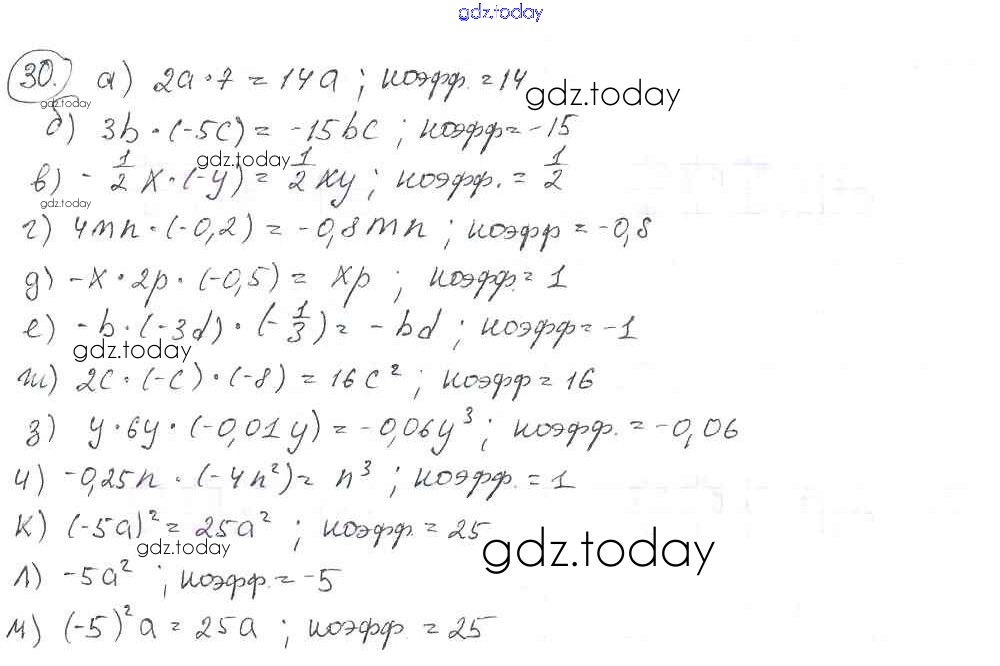 gdz.today
30. а) 2a · 7 = 14a ; коэфф. = 14
gdz.today
gdz.today
б) 3b · (-5c) = -15bc ; коэфф = -15
gdz.today
в) -1/2 x · (-y) = 1/2 xy ; коэфф. = 1/2
gdz.today
г) 4mn · (-0,2) = -0,8mn ; коэфф = -0,8
д) -x · 2p · (-0,5) = xp ; коэфф. = 1
е) -b · (-3d) · (-1/3) = -bd ; коэфф = -1
gdz.today
ж) 2c · (-c) · (-8) = 16c² ; коэфф = 16
з) y · 6y · (-0,01y) = -0,06y³ ; коэфф. = -0,06
и) -0,25n · (-4n²) = n³ ; коэфф. = 1
к) (-5a)² = 25a² ; коэфф. = 25
gdz.today
gdz.today
л) -5a² ; коэфф. = -5
м) (-5)²a = 25a ; коэфф. = 25